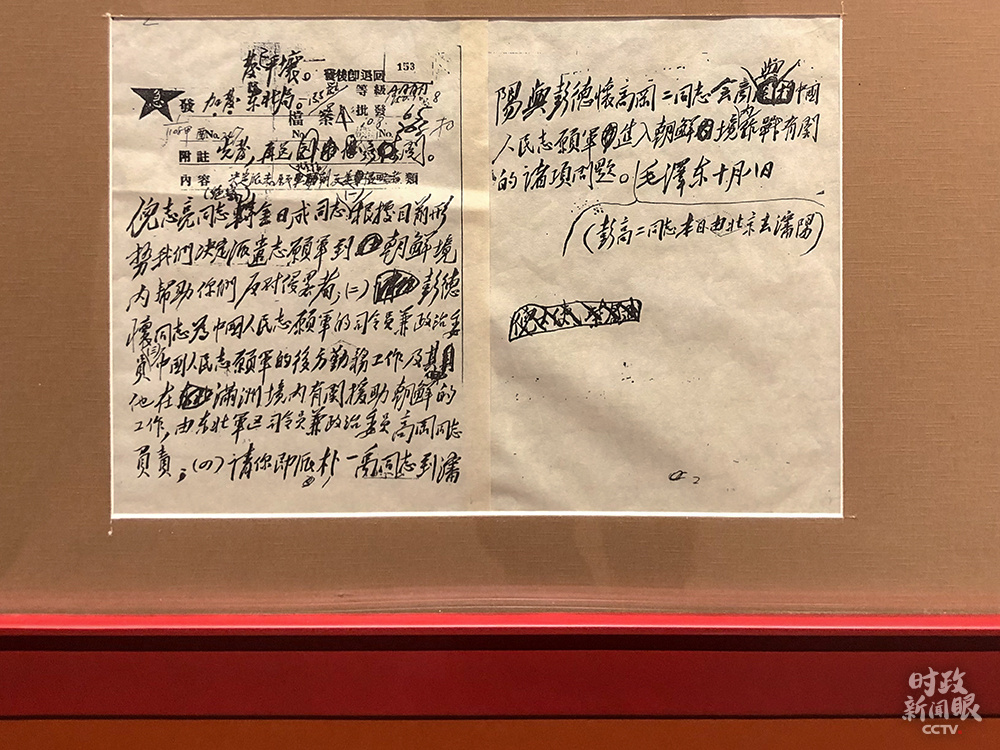 發平壤。
發後即退回
153
急
發 加發 東北局。
檔案
等級
批發
No.
No.
附註
內容
類
(絕密)
(一)
倪志亮同志轉金日成同志：根據目前形
勢我們決定派遣志願軍到朝鮮境
內帮助你們反对侵畧者；(二)彭德
懷同志為中國人民志願軍的司令員兼政治委
員(三)中國人民志願軍的後方勤務工作及其
他在滿洲境內有関援助朝鮮的
工作，由东北軍区司令員兼政治委員高岡同志
負責；(四)請你即派朴一禹同志到瀋
陽與彭德懷高岡二同志会商與中國
人民志願軍進入朝鮮境內作戰有関
的諸項問題。毛澤东十月八日
(彭高二同志本日由北京去瀋陽)
时政
新闻眼
CCTV